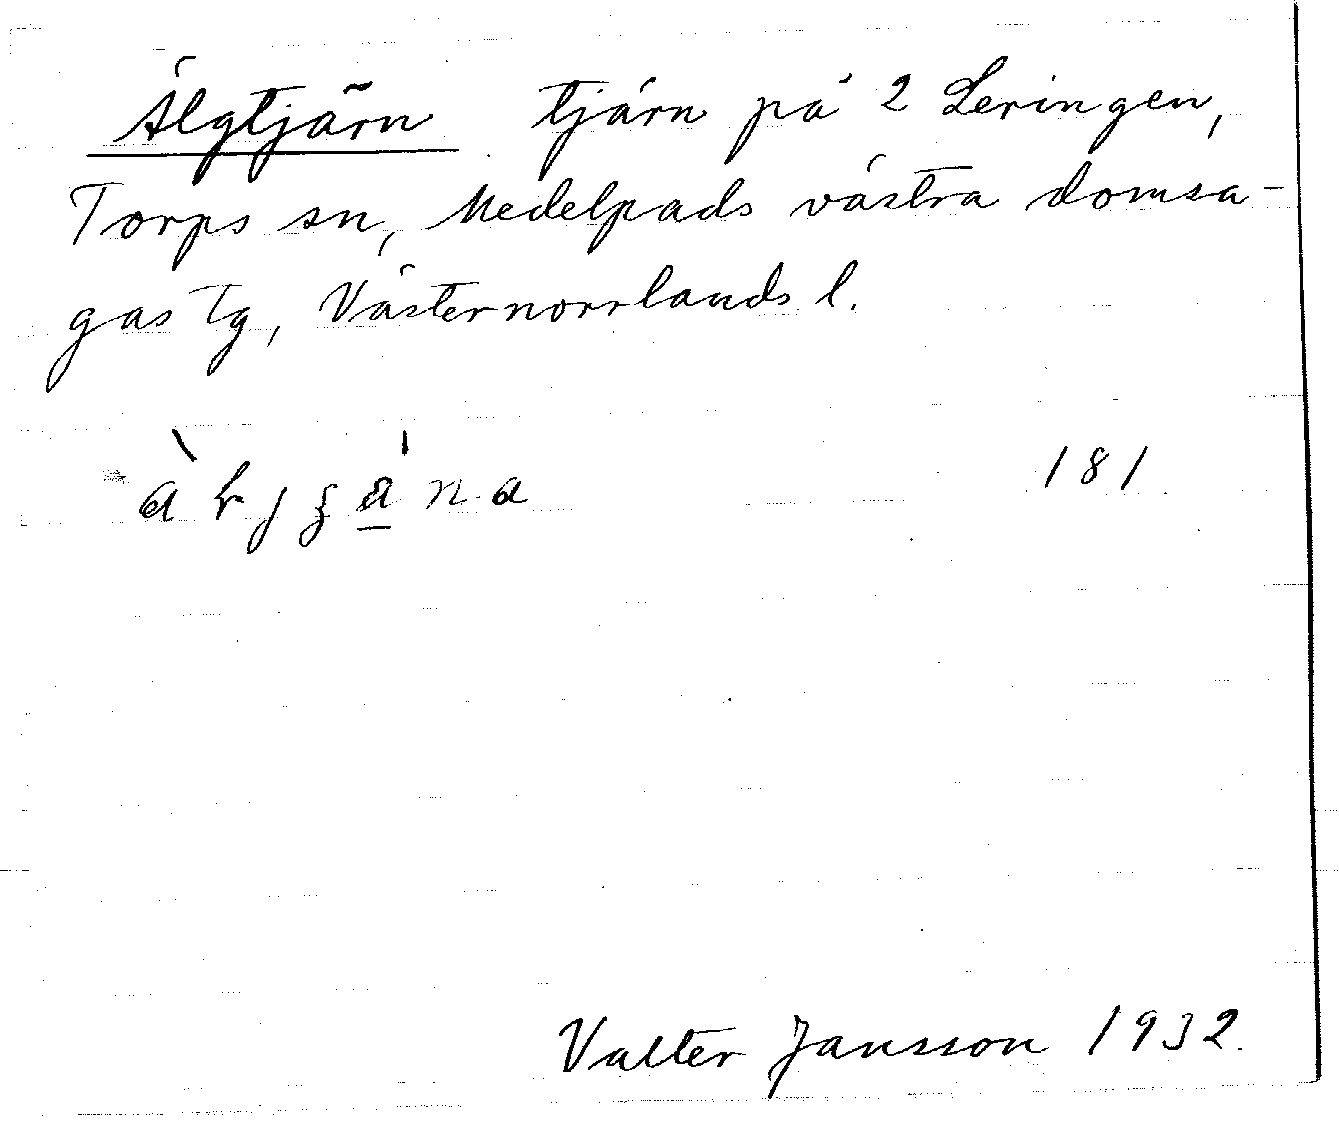 Älgtjärn tjärn på 2 Leringen,
Torps sn, Medelpads västra domsa-
gas tg, Västernorrlands l.
181
Valter Jansson 1932.